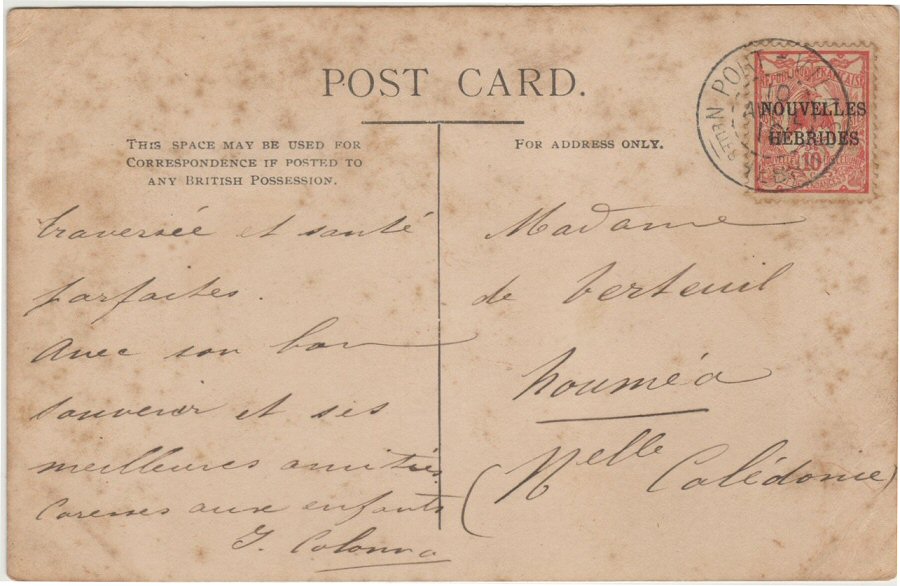 POST CARD.
THIS SPACE MAY BE USED FOR
CORRESPONDENCE IF POSTED TO
ANY BRITISH POSSESSION.
traversée et santé
parfaites.
Avec son bon
souvenir et ses
meilleures amitiés
Caresses aux enfants
J. Colonna
FOR ADDRESS ONLY.
REPUBLIQUE FRANÇAISE
NOUVELLES
HÉBRIDES
10
PORT
Madame
de Verteuil
Nouméa
(Nelle Calédonie)